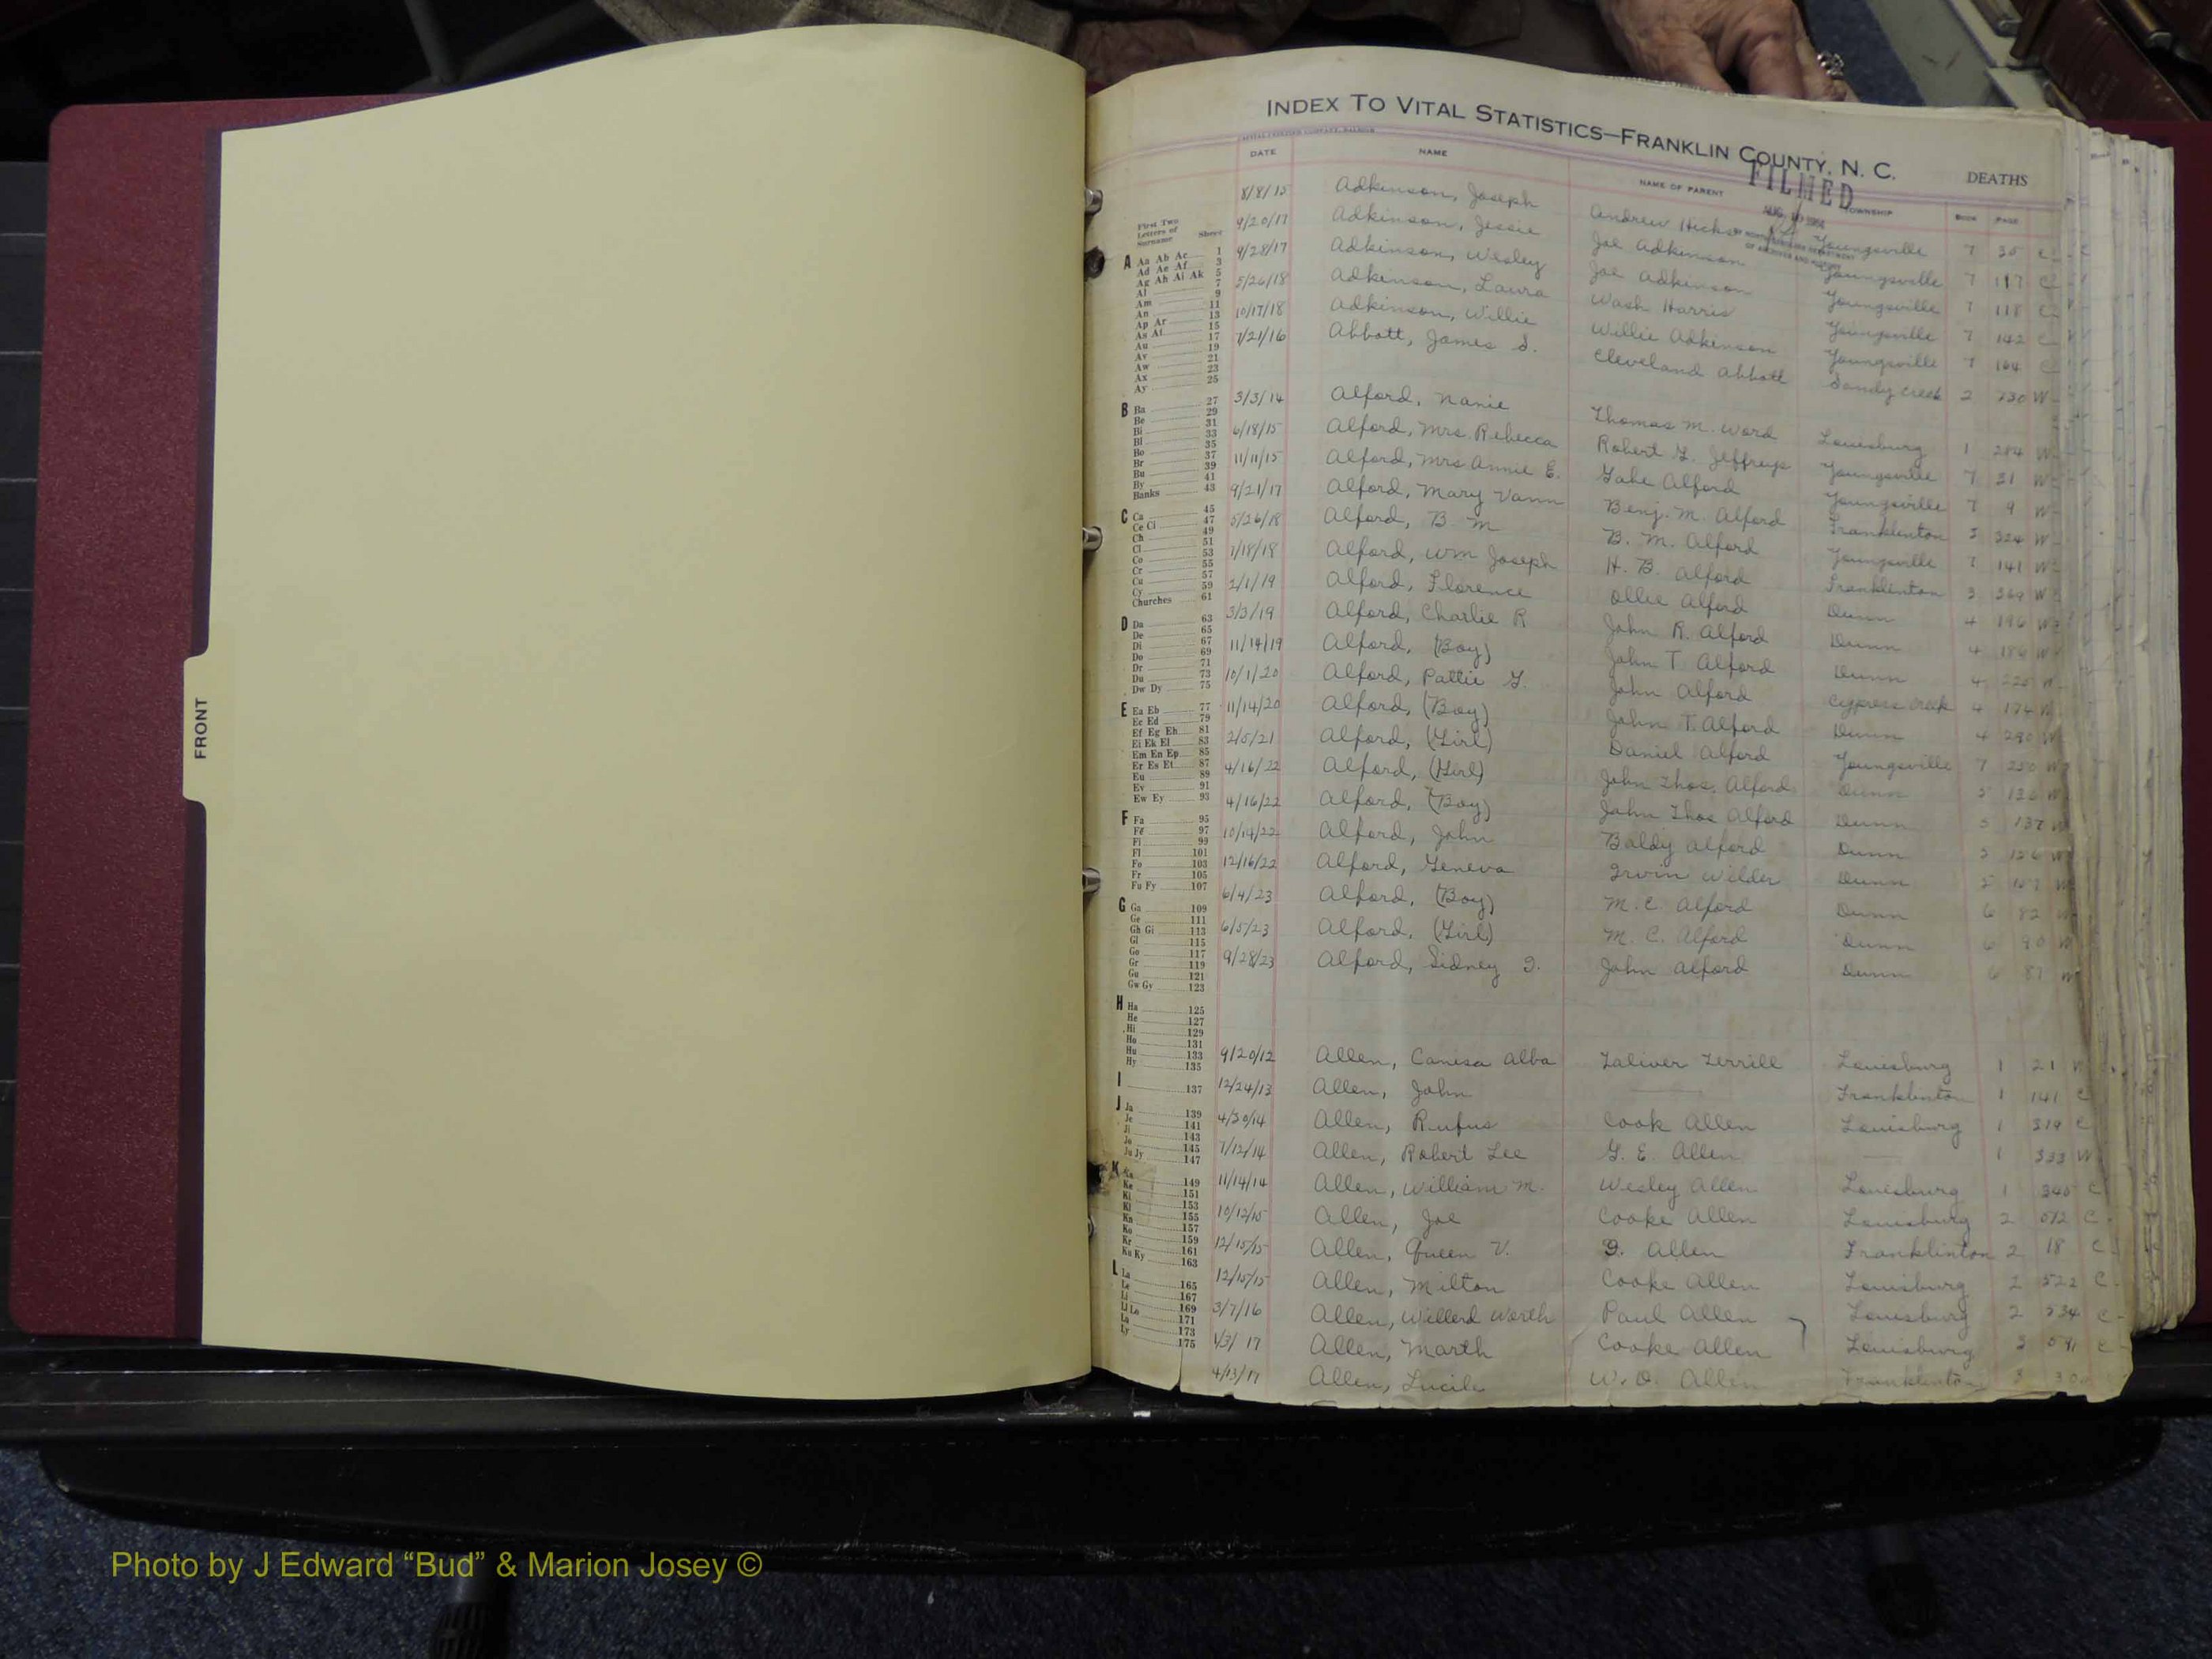 FRONT
INDEX TO VITAL STATISTICS—FRANKLIN COUNTY, N. C.
DEATHS
FILMED
DATE NAME NAME OF PARENT TOWNSHIP BOOK PAGE
8/8/15 Adkinson, Joseph Andrew Hicks Youngsville 7 35 C
9/20/17 Adkinson, Jessie Joe Adkinson Youngsville 7 117 C
9/28/17 Adkinson, Wesley Joe Adkinson Youngsville 7 118 C
5/26/18 Adkinson, Laura Wash Harris Youngsville 7 142 C
10/17/18 Adkinson, Willie Willie Adkinson Youngsville 7 164 C
7/21/16 Abbott, James S. Cleveland Abbott Sandy Creek 2 730 W
3/3/14 Alford, Nanie Thomas M. Word Louisburg 1 284 W
6/18/15 Alford, Mrs. Rebecca Robert G. Jeffreys Youngsville 7 31 W
11/11/15 Alford, Mrs Annie E. Alford Youngsville 7 9 W
9/21/17 Alford, Mary Vann Benj. M. Alford Franklinton 3 324 W
5/26/18 Alford, B. M B. M. Alford Youngsville 7 141 W
Alford, Wm Joseph H. B. Alford Franklinton 3 369 W
2/1/19 Alford, Florence Ollie Alford Dunn 4 196 W
3/3/19 Alford, Charlie R John R. Alford Dunn 4 186 W
11/14/19 Alford, (Boy) John T. Alford Dunn 4 225 W
10/1/20 Alford, Pattie G. John Alford Cypress Creek 4 174 W
11/14/20 Alford, (Boy) John T. Alford Dunn 4 280 W
2/5/21 Alford, (Girl) Daniel Alford Youngsville 7 250 W
4/16/22 Alford, (Girl) John Thos. Alford Dunn 5 136 W
4/16/22 Alford, (Boy) John Thos Alford Dunn 5 137 W
10/14/22 Alford, John Baldy Alford Dunn 5 156 W
12/16/22 Alford, Geneva Irvin Wilder Dunn 5 W
6/4/23 Alford, (Boy) M. C. Alford Dunn 6 82 W
6/5/23 Alford, (Girl) M. C. Alford Dunn 6 90 W
9/28/23 Alford, Sidney I. John Alford Dunn 6 87 W
9/20/12 Allen, Canisa Alba Taliver Terrill Louisburg 1 21 W
12/24/13 Allen, John Franklinton 1 141 C
4/30/14 Allen, Rufus Cook Allen Louisburg 1 319 C
7/12/14 Allen, Robert Lee G. E. Allen 1 333 W
11/14/14 Allen, William M. Wesley Allen Louisburg 1 340 C
10/12/15 Allen, Joe Cooke Allen Louisburg 2 C
12/15/15 Allen, Queen V. I. Allen Franklinton 2 18 C
12/15/15 Allen, Milton Cooke Allen Louisburg 2 522 C
3/7/16 Allen, Willerd Worth Paul Allen Louisburg 2 C
1/3/17 Allen, Marth Cooke Allen Louisburg 3 C
4/13/17 Allen, Lucile W. O. Allen Franklinton 3
First Two
Letters of
Surname Sheet
A Aa Ab Ac 1
Ad Ae Af 3
Ag Ah Ai Ak 5
Al 7
Am 9
An 11
Ap Ar 13
As At 15
Au 17
Av 19
Aw 21
Ax 23
Ay 25
B Ba 27
Be 29
Bi 31
Bl 33
Bo 35
Br 37
Bu 39
By 41
Banks 43
C Ca 45
Ce Ci 47
Ch 49
Cl 51
Co 53
Cr 55
Cu 57
Cy 59
Churches 61
D Da 63
De 65
Di 67
Do 69
Dr 71
Du 73
Dw Dy 75
E Ea Eb 77
Ec Ed 79
Ef Eg Eh 81
Ei Ek El 83
Em En Ep 85
Er Es Et 87
Eu 89
Ev 91
Ew Ey 93
F Fa 95
Fe 97
Fi 99
Fl 101
Fo 103
Fr 105
Fu Fy 107
G Ga 109
Ge 111
Gh Gi 113
Gl 115
Go 117
Gr 119
Gu 121
Gw Gy 123
H Ha 125
He 127
Hi 129
Ho 131
Hu 133
Hy 135
I 137
J Ja 139
Je 141
Ji 143
Jo 145
Ju Jy 147
K Ka 149
Ke 151
Ki 153
Kl 155
Kn 157
Ko 159
Kr 161
Ku Ky 163
L La 165
Le 167
Li 169
Ll Lo 171
Lu 173
Ly 175
Photo by J Edward “Bud” & Marion Josey ©